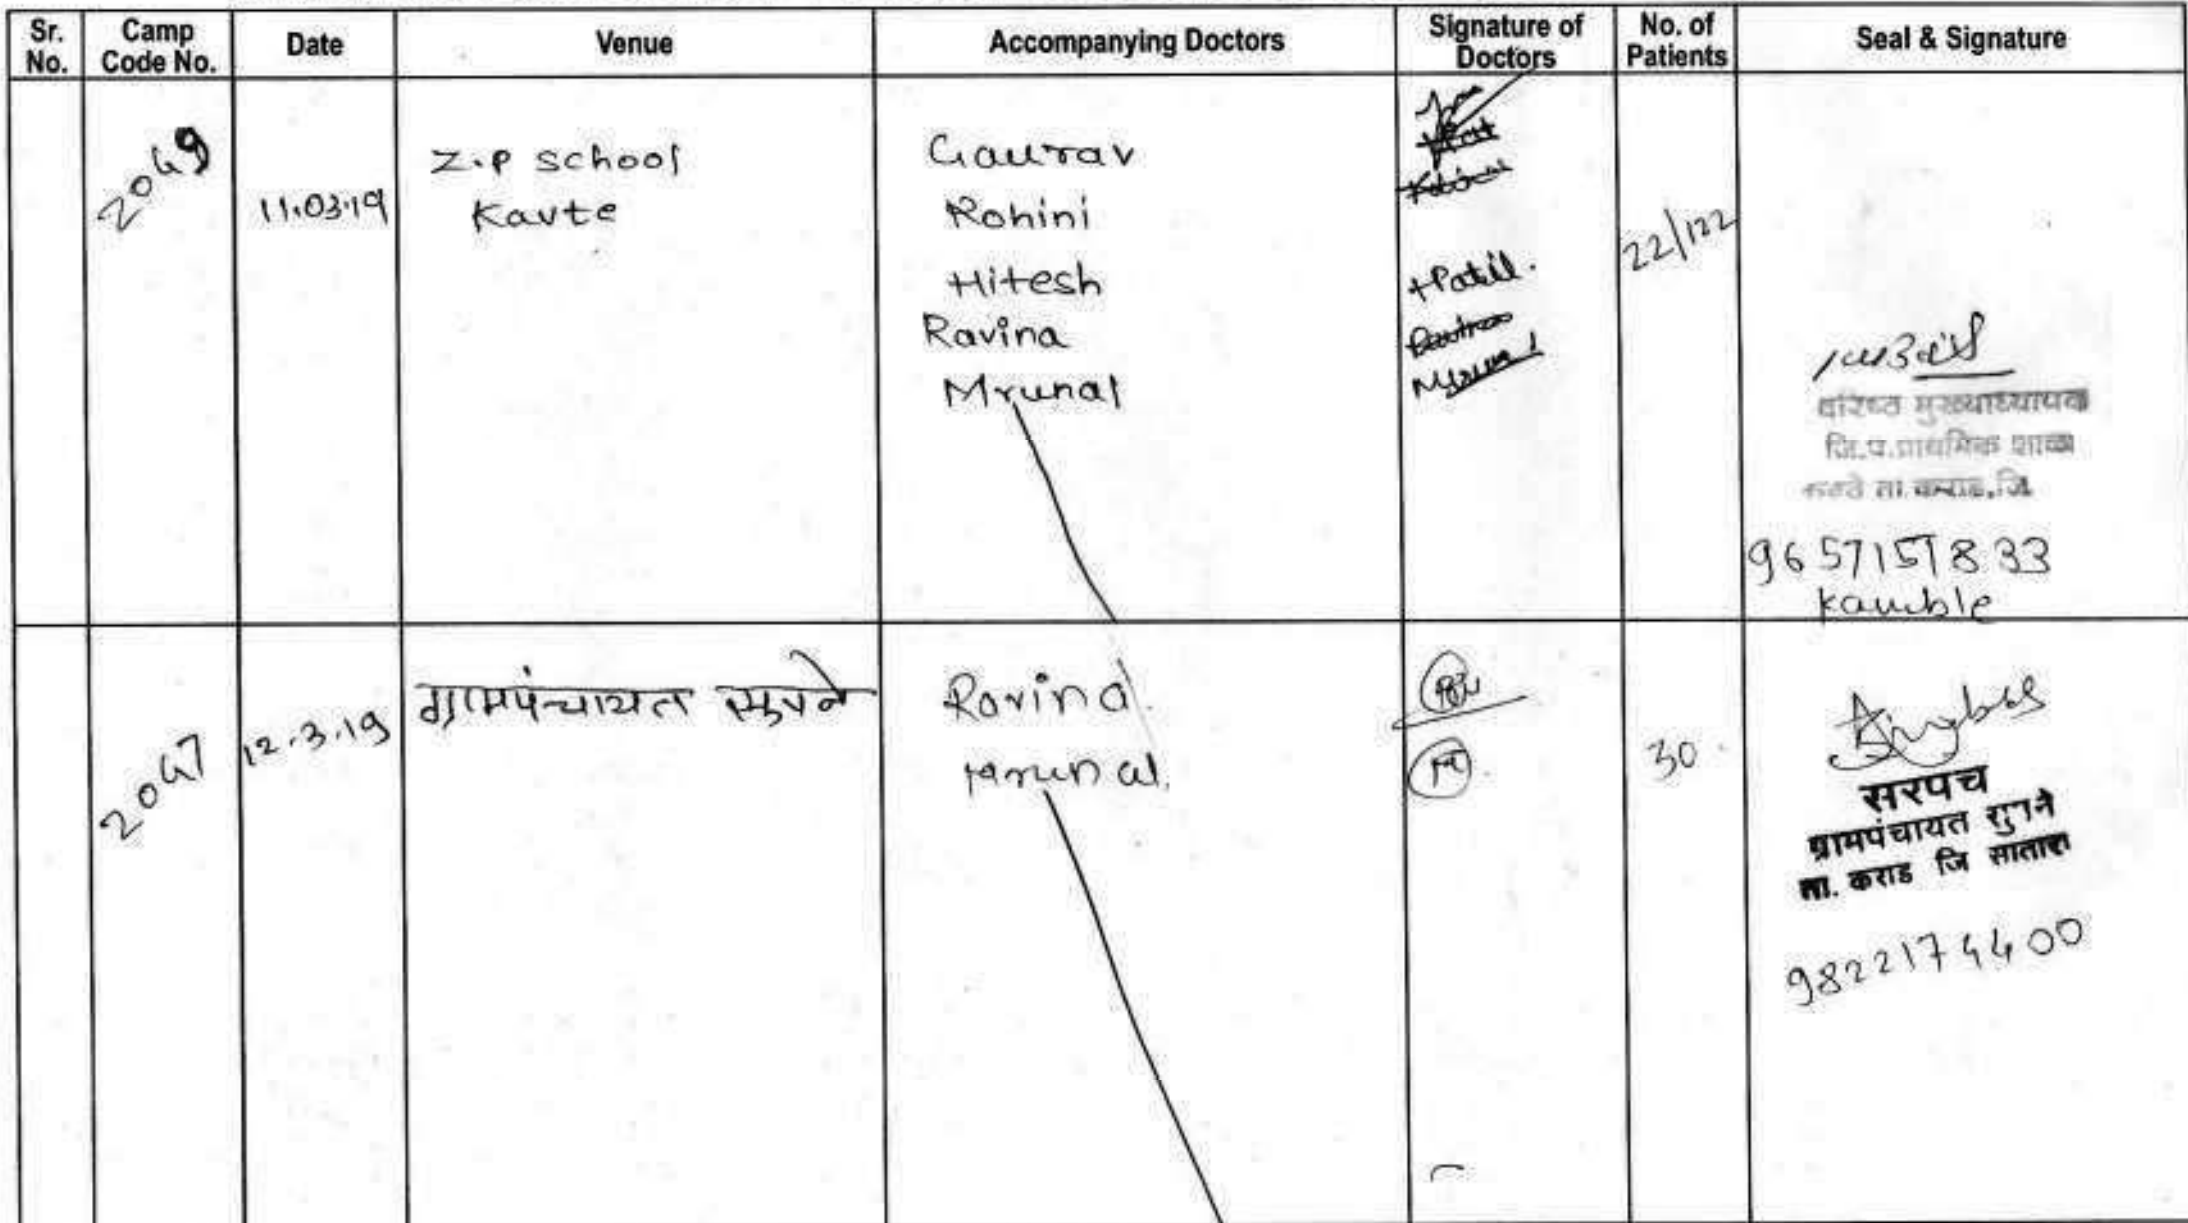 Sr. No. Camp Code No. Date Venue Accompanying Doctors Signature of Doctors No. of Patients Seal & Signature
2049 11.03.19 Z.P School Kavte
Gaurav
Rohini
Hitesh
Ravina
Mrunal
HPatil.
Ravina
Mrunal
22/122
वरिष्ठ मुख्याध्यापक
जि.प.प्राथमिक शाळा
कवठे ता.कराड,जि.
9657157833
Kamble
2047 12.3.19 ग्रामपंचायत सुपने
Ravina.
Mrunal.
30.
सरपंच
ग्रामपंचायत सुपने
ता. कराड जि सातारा
9822174400